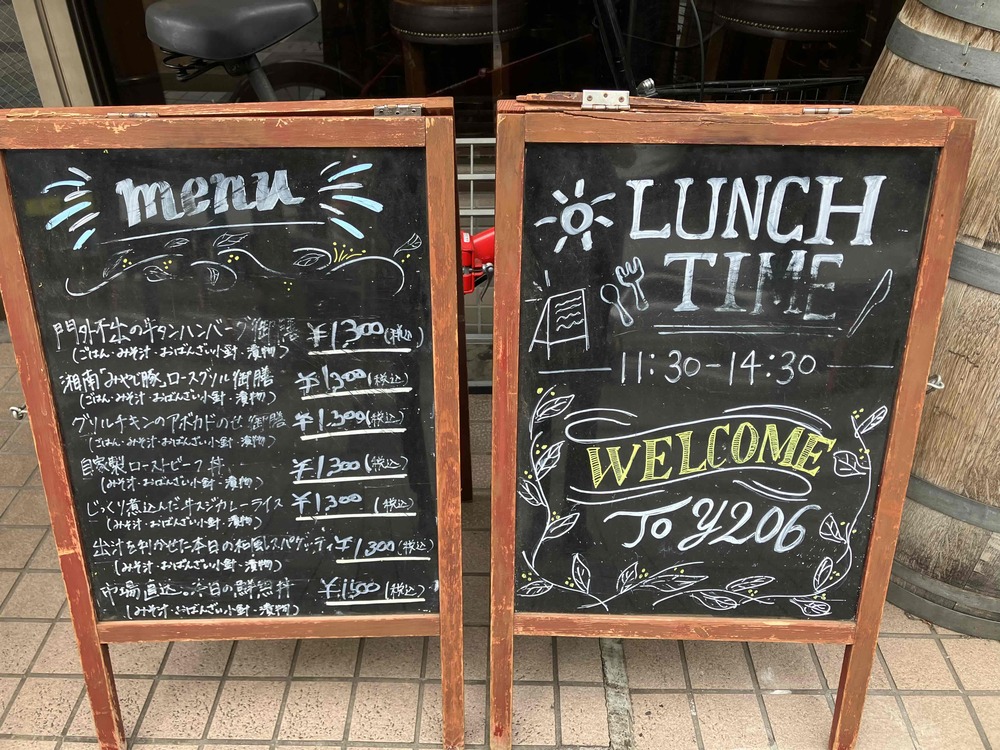 menu
門外不出の牛タンハンバーグ御膳 ¥1,300(税込)
(ごはん・みそ汁・おばんざい小鉢・漬物)
湘南「みやじ豚」ロースグリル御膳 ¥1,300(税込)
(ごはん・みそ汁・おばんざい小鉢・漬物)
グリルチキンのアボカドのせ御膳 ¥1,300(税込)
(ごはん・みそ汁・おばんざい小鉢・漬物)
自家製ローストビーフ丼 ¥1,300(税込)
(みそ汁・おばんざい小鉢・漬物)
じっくり煮込んだ牛スジカレーライス ¥1,300(税込)
(みそ汁・おばんざい小鉢・漬物)
出汁を利かせた本日の和風スパゲッティ ¥1,300(税込)
(みそ汁・おばんざい小鉢・漬物)
市場直送 本日の海鮮丼 ¥1,500(税込)
(みそ汁・おばんざい小鉢・漬物)
LUNCH
TIME
11:30-14:30
WELCOME
To Y206